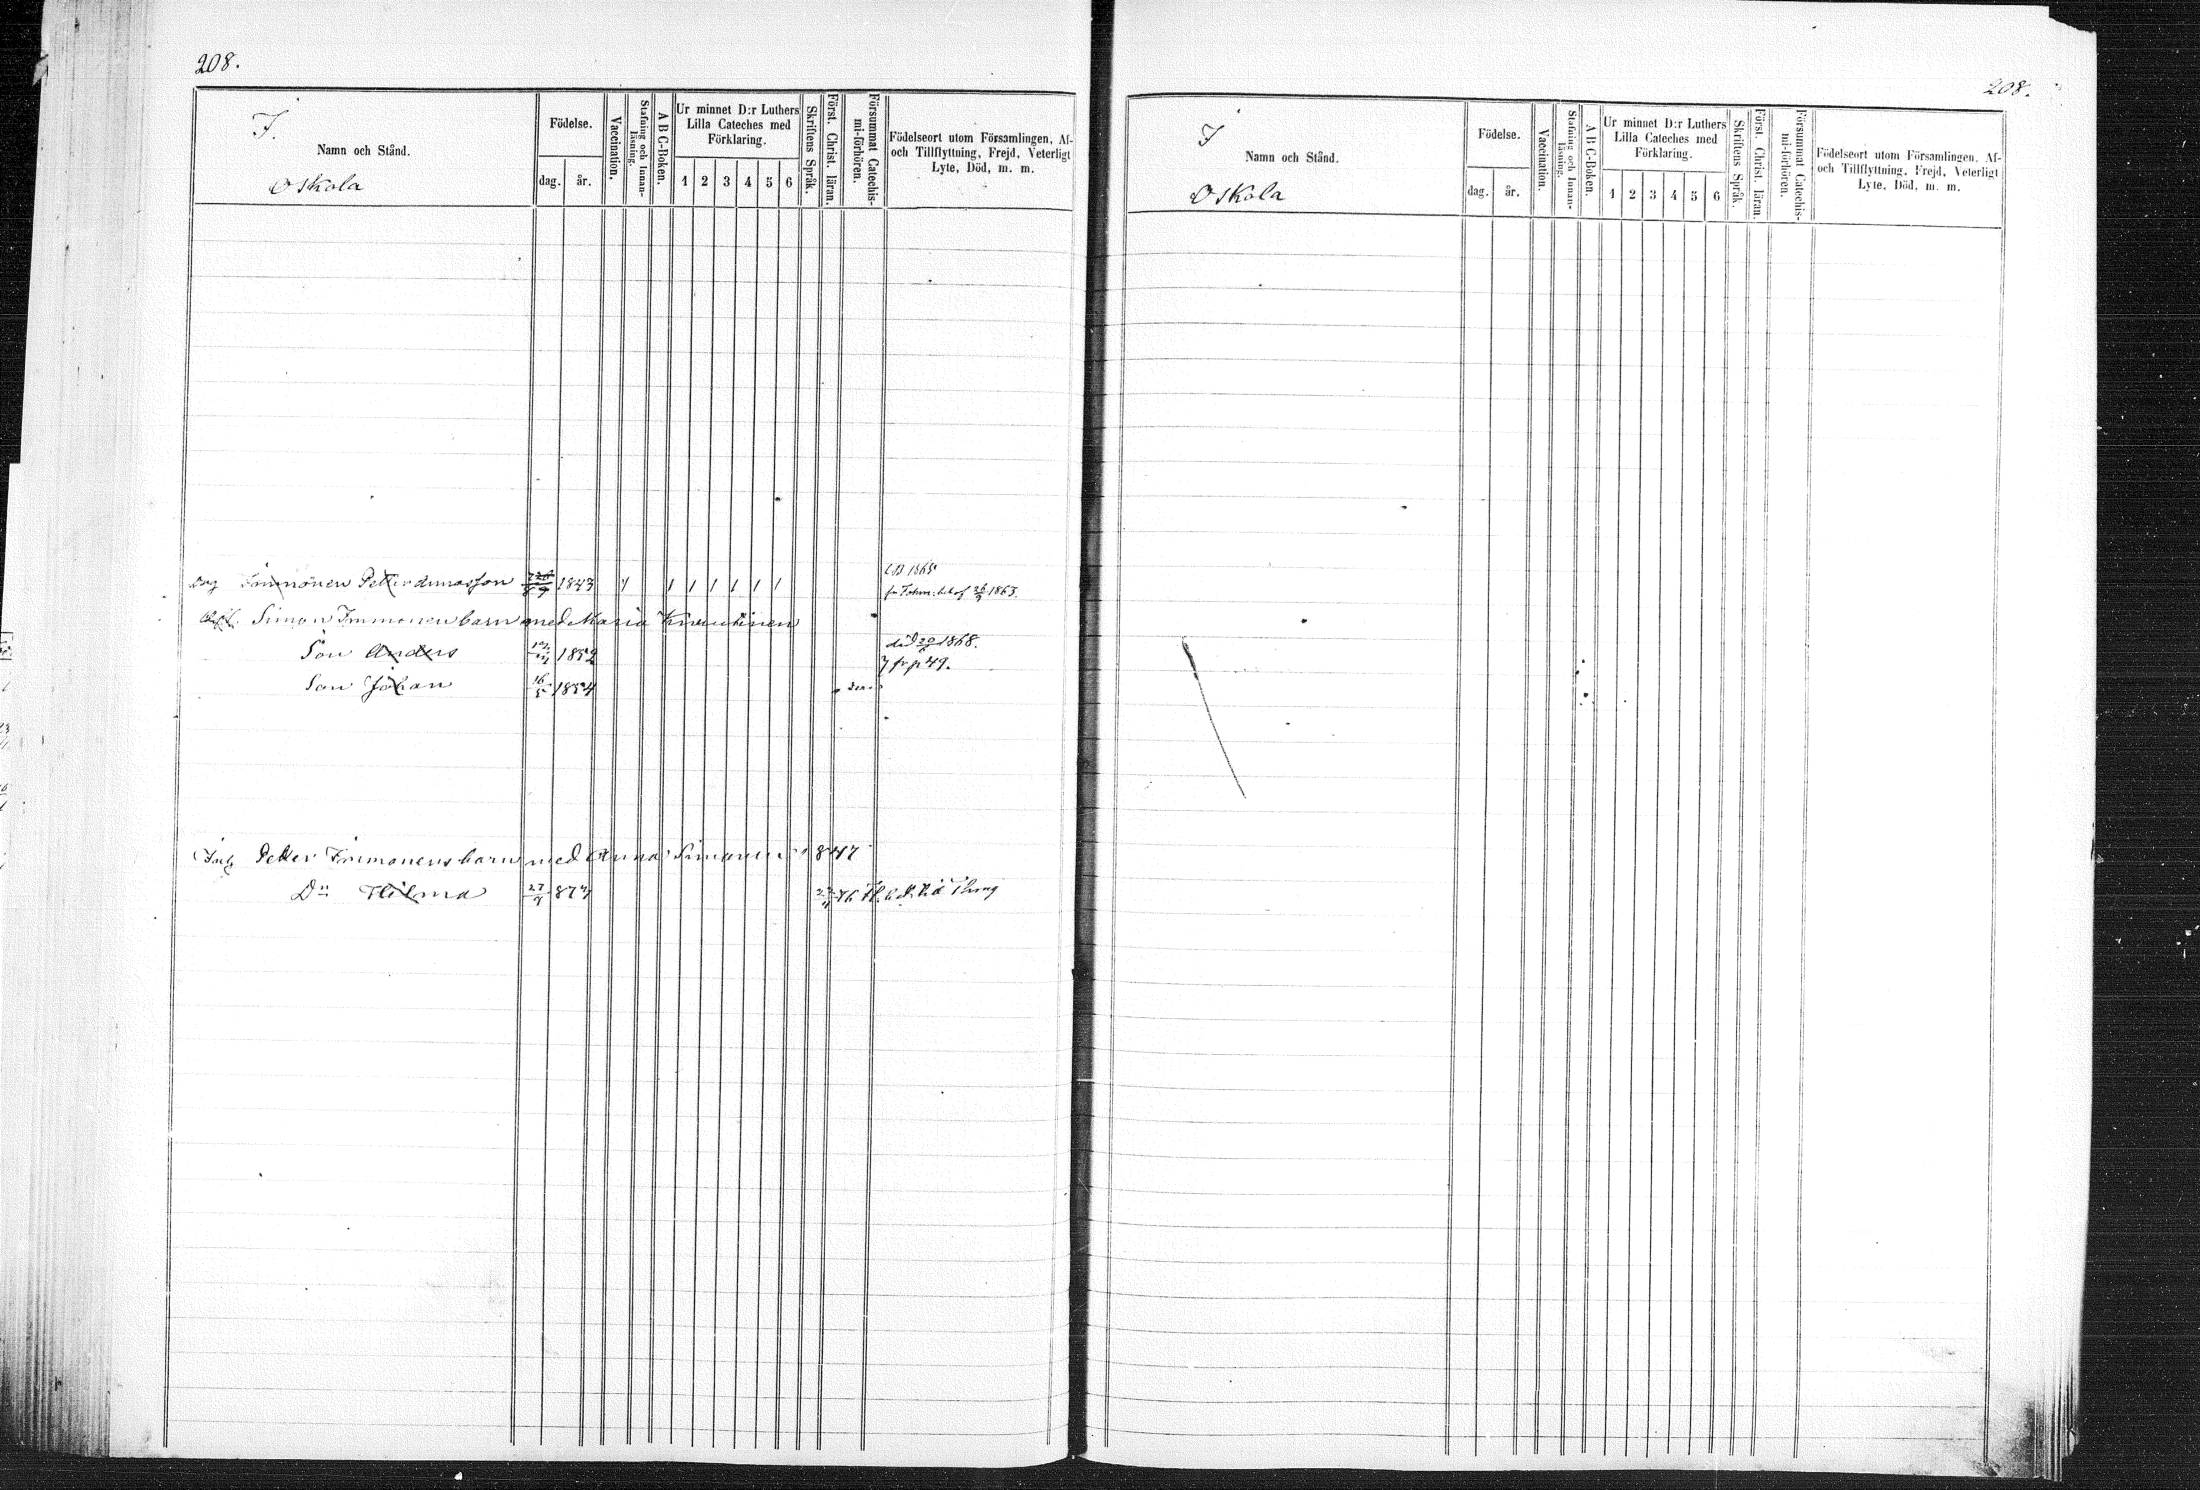 208.
I.
Namn och Stånd.
Oskola
Födelse.
dag. år.
Vaccination.
Stafning och Innan-
läsning.
A B C-Boken.
Ur minnet D:r Luthers
Lilla Cateches med
Förklaring.
1 2 3 4 5 6
Skriftens Språk.
Först. Christ. läran.
Försummat Catechis-
mi-förhören.
Födelseort utom Församlingen, Af-
och Tillflyttning, Frejd, Veterligt
Lyte, Död, m. m.
1865
Drg Immonen Petter 1843 1 1 1 1 1 1 1 1863.
Simon Immonen barn med Maria
Son Anders 1852 död 1868.
fr p 49.
Son Johan 16/5 1854
Petter Immonens barn med Anna 1847
Dr Hilma 27/9 877
208.
I
Namn och Stånd.
Oskola
Födelse.
dag. år.
Vaccination.
Stafning och Innan-
läsning.
A B C-Boken.
Ur minnet D:r Luthers
Lilla Cateches med
Förklaring.
1 2 3 4 5 6
Skriftens Språk.
Först. Christ. läran.
Försummat Catechis-
mi-förhören.
Födelseort utom Församlingen, Af-
och Tillflyttning, Frejd, Veterligt
Lyte, Död, m. m.